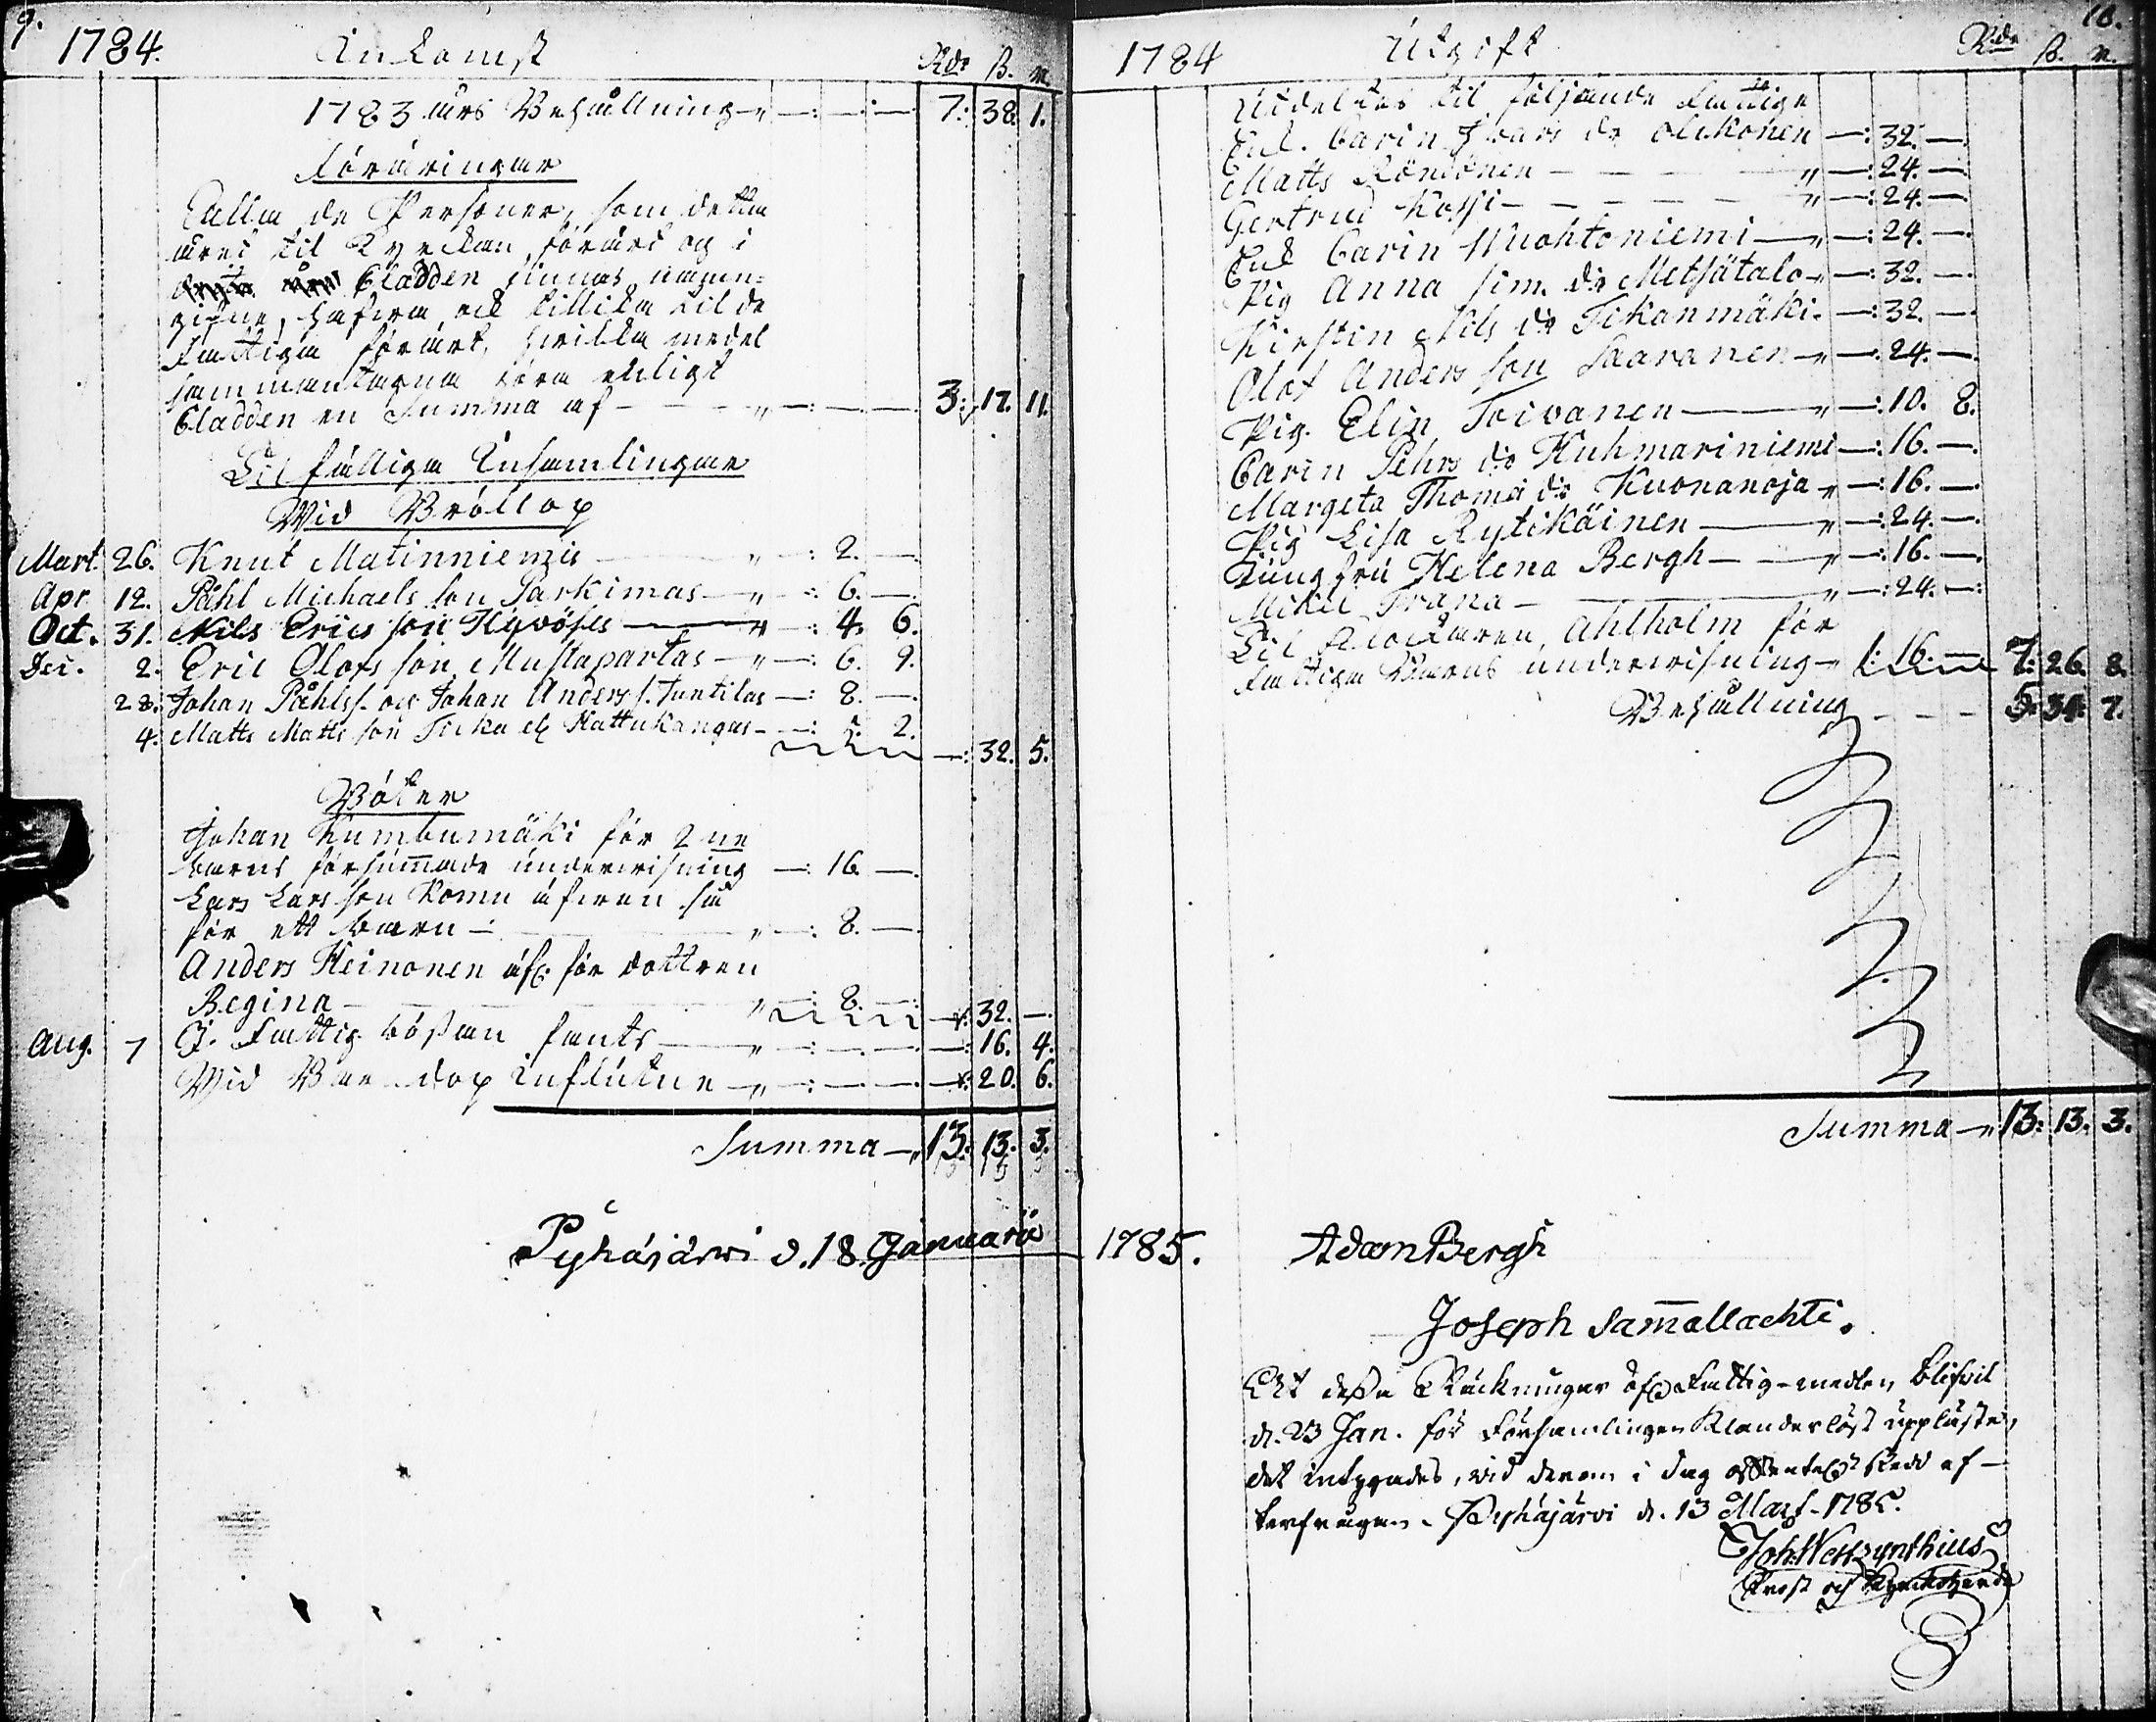 9.
1784. Inkomst Rdr ß. rs.
1783 års Behållning 7: 38. 1.
Föräringar
Alla de Personer, som detta
året til Kyrckan förärt og i
Cladden finnas uppen-
gifne, hafwa ock tillika til de
fattiga förärt, hwilka medel
sammantagna göra enligt
Cladden en Summa af 3: 17. 11.
Tilfälliga Insamlingar
Wid Bröllop
Mart. 26. Knut Matinniemis —: 2. —
Apr. 12. Påhl Michaels son Parkimas —: 6. —
Oct. 31. Nils Erics son Hyvöses —: 4. 6.
Dec. 2. Eric Olofs son Mustapartas —: 6. 9.
28. Johan Påhlss. och Johan Anderss. Juntilas —: 8. —
4. Matts Matts son Ticka el. Kattukangas —: 5. 2.
—: 32. 5.
Böter
Johan Kumbumäki för 2ne
barns försummade underwisning —: 16. —
Lars Lars son Komu äfwen så
för ett barn —: 8. —
Anders Heinonen äfv. för dottren
Regina —: 8. — —: 32. —
Aug. 7 I Fattig bössan fants —: 16. 4.
Wid Barndop influtne —: 20. 6.
Summa 13: 13. 3.
Pyhäjärwi d. 18 Januarii
10.
1784 Utgift Rdr ß. rs.
Utdeltes til följande fattige
Enk. Carin Ivars dr Olikonen —: 32. —
Matts Rönkönen —: 24. —
Gertrud Kossi —: 24. —
Enk Carin Muohtoniemi —: 24. —
Pig Anna Sim. dr Metsätalo —: 32. —
Kirstin Nils dr Tikanmäki —: 32. —
Olof Anders son Saaranen —: 24. —
Pig. Elin Toivanen —: 10. 8.
Carin Pehrs dr Kuhmariniemi —: 16. —
Margeta Thomæ dr Kuonanoja —: 16. —
Pig Lisa Rytikäinen —: 24. —
Jungfru Helena Bergh —: 16. —
Mikel Trana —: 24. —
Til Klockaren Ahlholm för
fattiga Barns underwisning 1: 16. — 7: 26. 8.
Behållning 5: 34. 7.
Summa 13: 13. 3.
1785. Adam Bergh
Joseph Samallachti.
At dessa Räckningar öfver Fattig-medlen blifvit
d. 23 Jan. för Församlingen Klanderlöst uppläste,
det intygades, vid derom i dag skedd ef-
terfrågan. Pyhäjärvi d. 13 Mart. 1785.
Joh. Westzynthius
Prost och Kyrckoherde